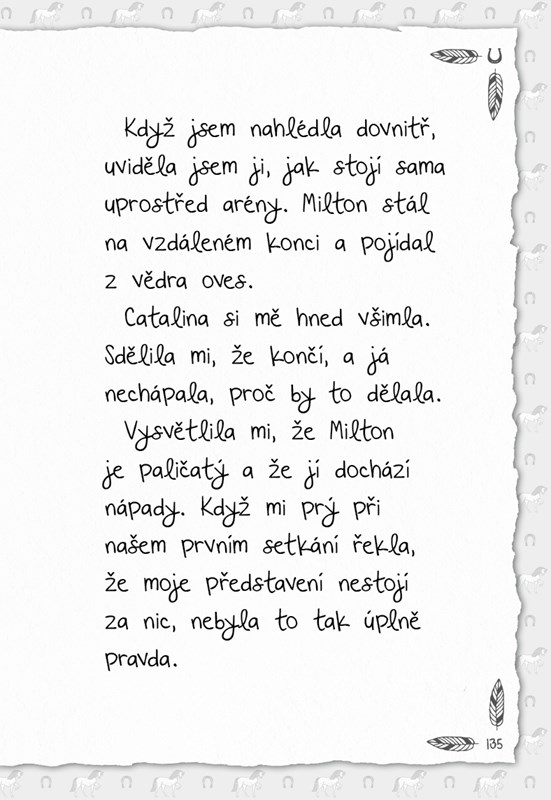 Když jsem nahlédla dovnitř,
uviděla jsem ji, jak stojí sama
uprostřed arény. Milton stál
na vzdáleném konci a pojídal
z vědra oves.
Catalina si mě hned všimla.
Sdělila mi, že končí, a já
nechápala, proč by to dělala.
Vysvětlila mi, že Milton
je paličatý a že jí dochází
nápady. Když mi prý při
našem prvním setkání řekla,
že moje představení nestojí
za nic, nebyla to tak úplně
pravda.
135